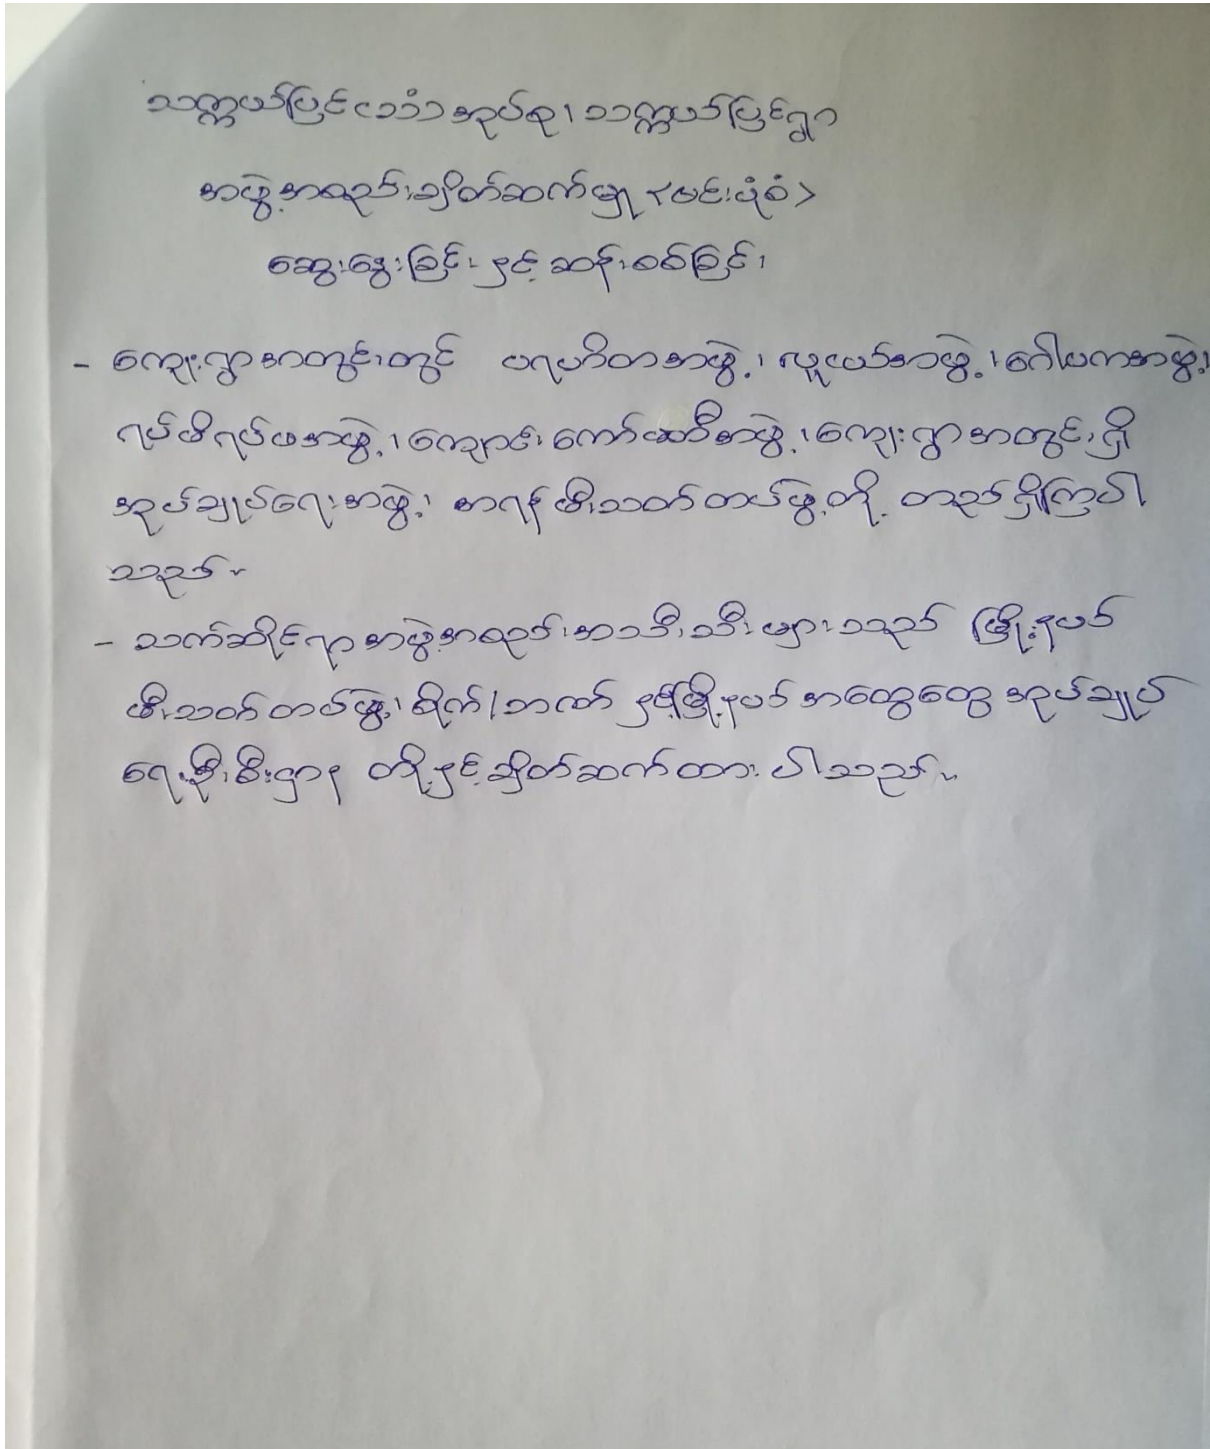 သက္ကယ်ပြင် အုပ်စု၊ သက္ကယ်ပြင်ရွာ
အဖွဲ့အစည်းချိတ်ဆက်မှု <ဗင်းပုံစံ>
ဆွေးနွေးခြင်း နှင့် ဆန်းစစ်ခြင်း
- ကျေးရွာအတွင်းတွင် ပရဟိတအဖွဲ့၊ လူငယ်အဖွဲ့၊ ဂေါပကအဖွဲ့၊
ရပ်မိရပ်ဖအဖွဲ့၊ ကျောင်းကော်မတီအဖွဲ့၊ ကျေးရွာအတွင်းရှိ
အုပ်ချုပ်ရေးအဖွဲ့၊ အရန်မီးသတ်တပ်ဖွဲ့တို့ တည်ရှိကြပါ
သည်။
- သက်ဆိုင်ရာအဖွဲ့အစည်းအသီးသီးများသည် မြို့နယ်
မီးသတ်တပ်ဖွဲ့၊ စိုက်/ဘဏ် နှင့်မြို့နယ်အထွေထွေအုပ်ချုပ်
ရေးဦးစီးဌာန တို့နှင့်ချိတ်ဆက်ထားပါသည်။